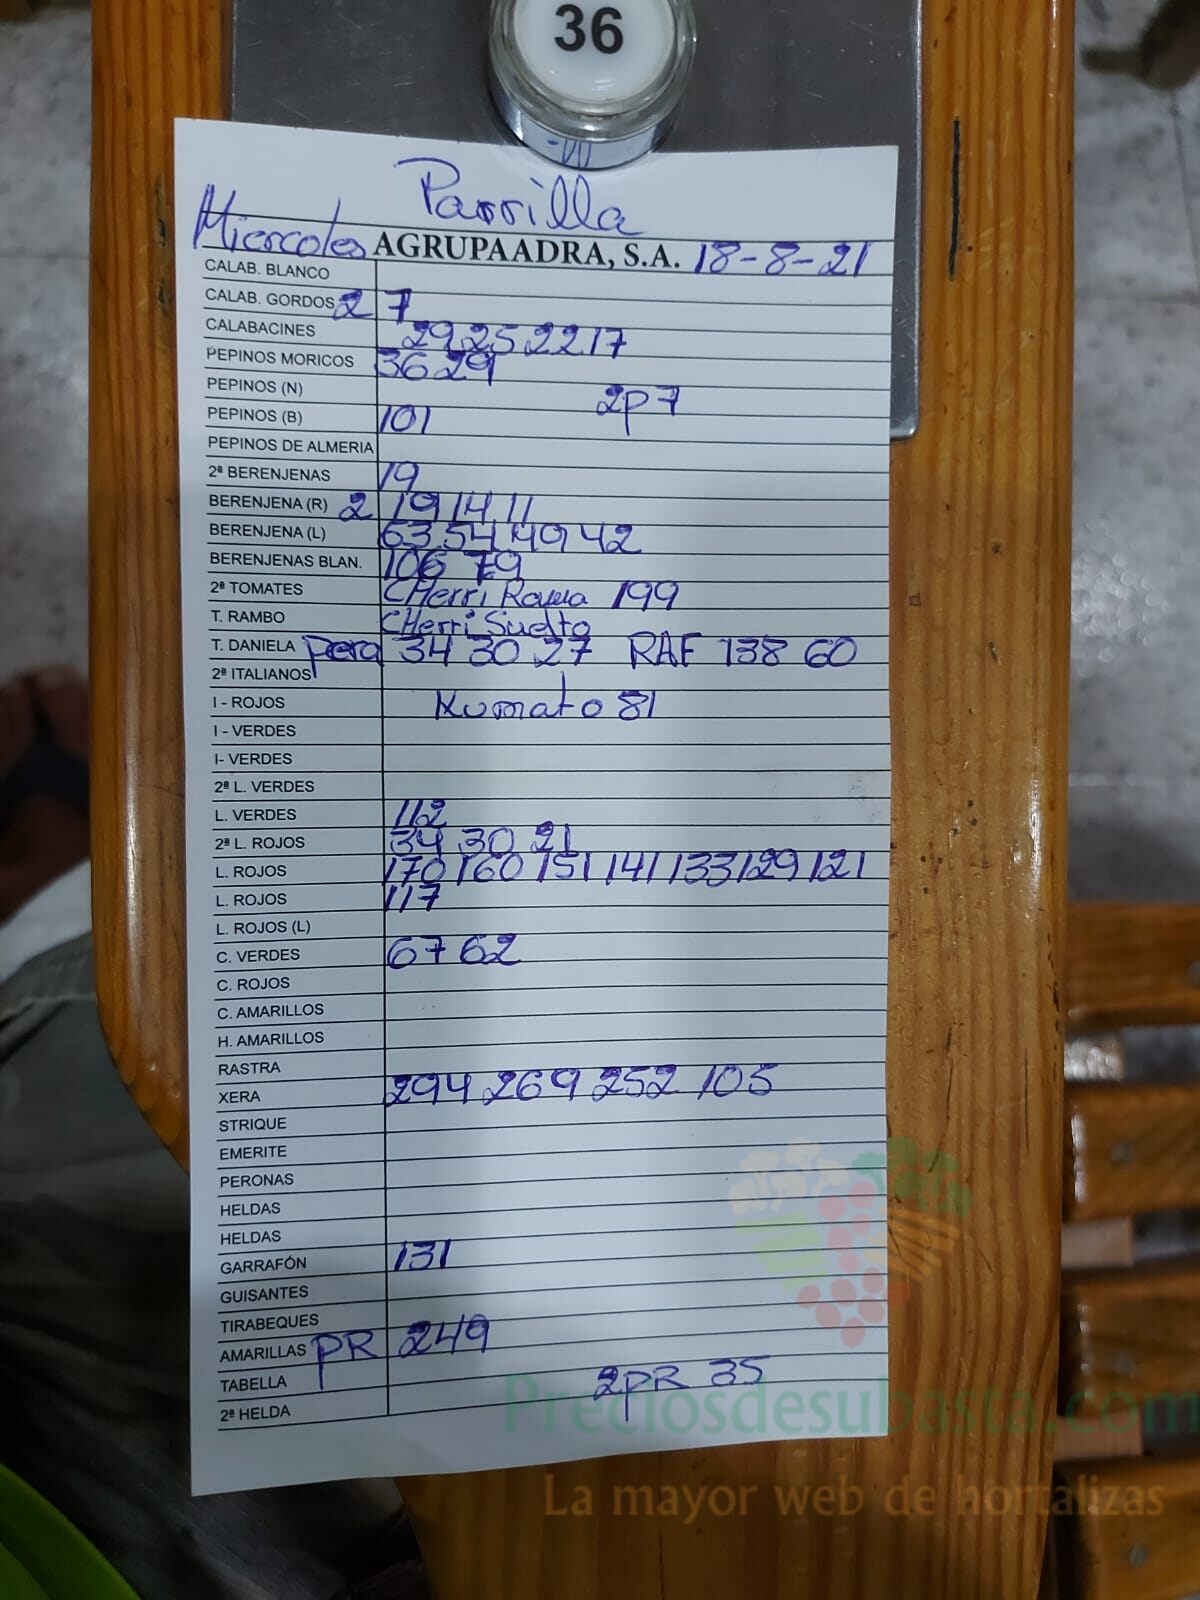 36
Parrilla
Miercoles AGRUPAADRA, S.A. 18-8-21
CALAB. BLANCO
CALAB. GORDOS 2 7
CALABACINES 29 25 22 17
PEPINOS MORICOS 36 29
PEPINOS (N) 2P7
PEPINOS (B) 101
PEPINOS DE ALMERIA
2ª BERENJENAS 19
BERENJENA (R) 2 19 14 11
BERENJENA (L) 63 54 49 42
BERENJENAS BLAN. 106 79
2ª TOMATES CHerri Rama 199
T. RAMBO CHerri Suelto
T. DANIELA pera 34 30 27 RAF 138 60
2ª ITALIANOS
I - ROJOS Kumato 81
I - VERDES
I- VERDES
2ª L. VERDES
L. VERDES 112
2ª L. ROJOS 34 30 21
L. ROJOS 170 160 151 141 133 129 121
L. ROJOS 117
L. ROJOS (L)
C. VERDES 67 62
C. ROJOS
C. AMARILLOS
H. AMARILLOS
RASTRA
XERA 294 269 252 105
STRIQUE
EMERITE
PERONAS
HELDAS
HELDAS
GARRAFÓN 131
GUISANTES
TIRABEQUES
AMARILLAS PR 249
TABELLA 2PR 35
2ª HELDA
Preciosdesubasta.com
La mayor web de hortalizas